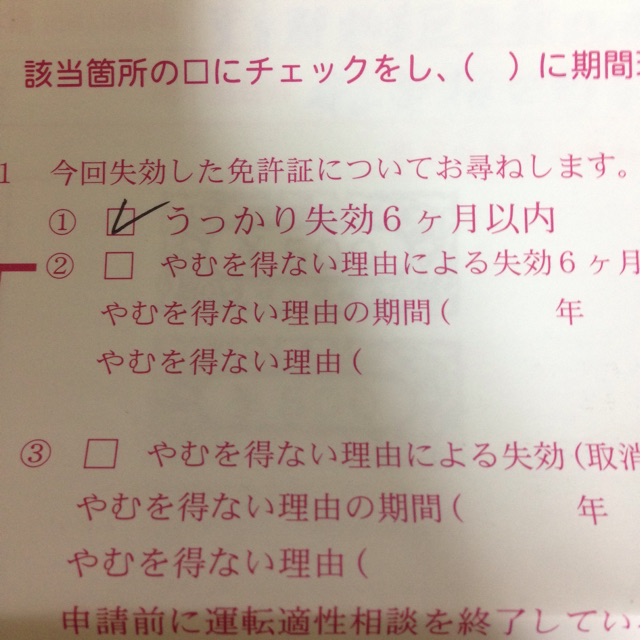 該当箇所の□にチェックをし、( )に期間
1 今回失効した免許証についてお尋ねします。
① □ うっかり失効6ヶ月以内
② □ やむを得ない理由による失効6ヶ月
やむを得ない理由の期間( 年
やむを得ない理由(
③ □ やむを得ない理由による失効(取消
やむを得ない理由の期間( 年
やむを得ない理由(
申請前に運転適性相談を終了してい